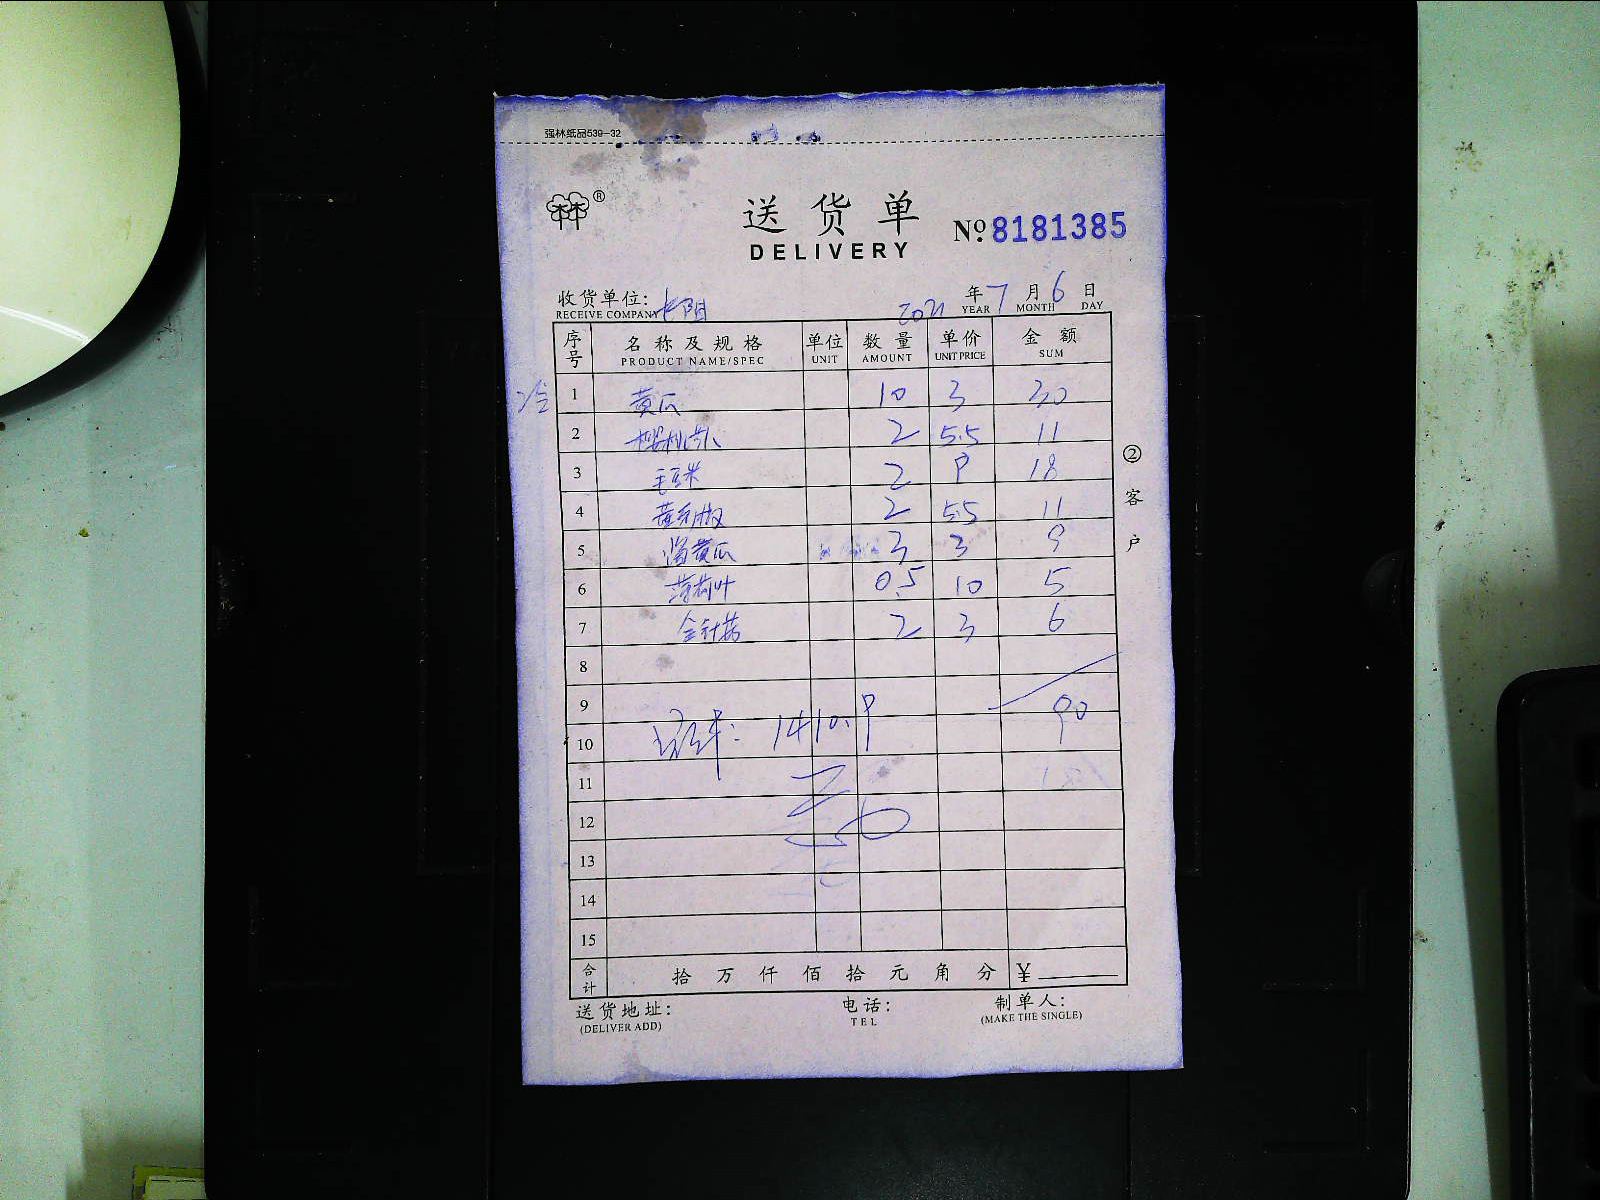 强林纸品539-32
®
送货单
DELIVERY
No.8181385
收货单位: 长阳
RECEIVE COMPANY
2021 年 7 月 6 日
YEAR MONTH DAY
序号 名称及规格 单位 数量 单价 金额
PRODUCT NAME/SPEC UNIT AMOUNT UNIT PRICE SUM
冷 1 黄瓜 10 3 30
2 樱桃萝卜 2 5.5 11
3 毛豆米 2 9 18
4 黄彩椒 2 5.5 11
5 黄瓜 3 3 9
6 薄荷叶 0.5 10 5
7 金针菇 2 3 6
8
9 90
10 1410.9
11
12
13
14
15
合计 拾万仟佰拾元角分 ¥
②客户
送货地址: 电话: 制单人:
(DELIVER ADD) TEL (MAKE THE SINGLE)